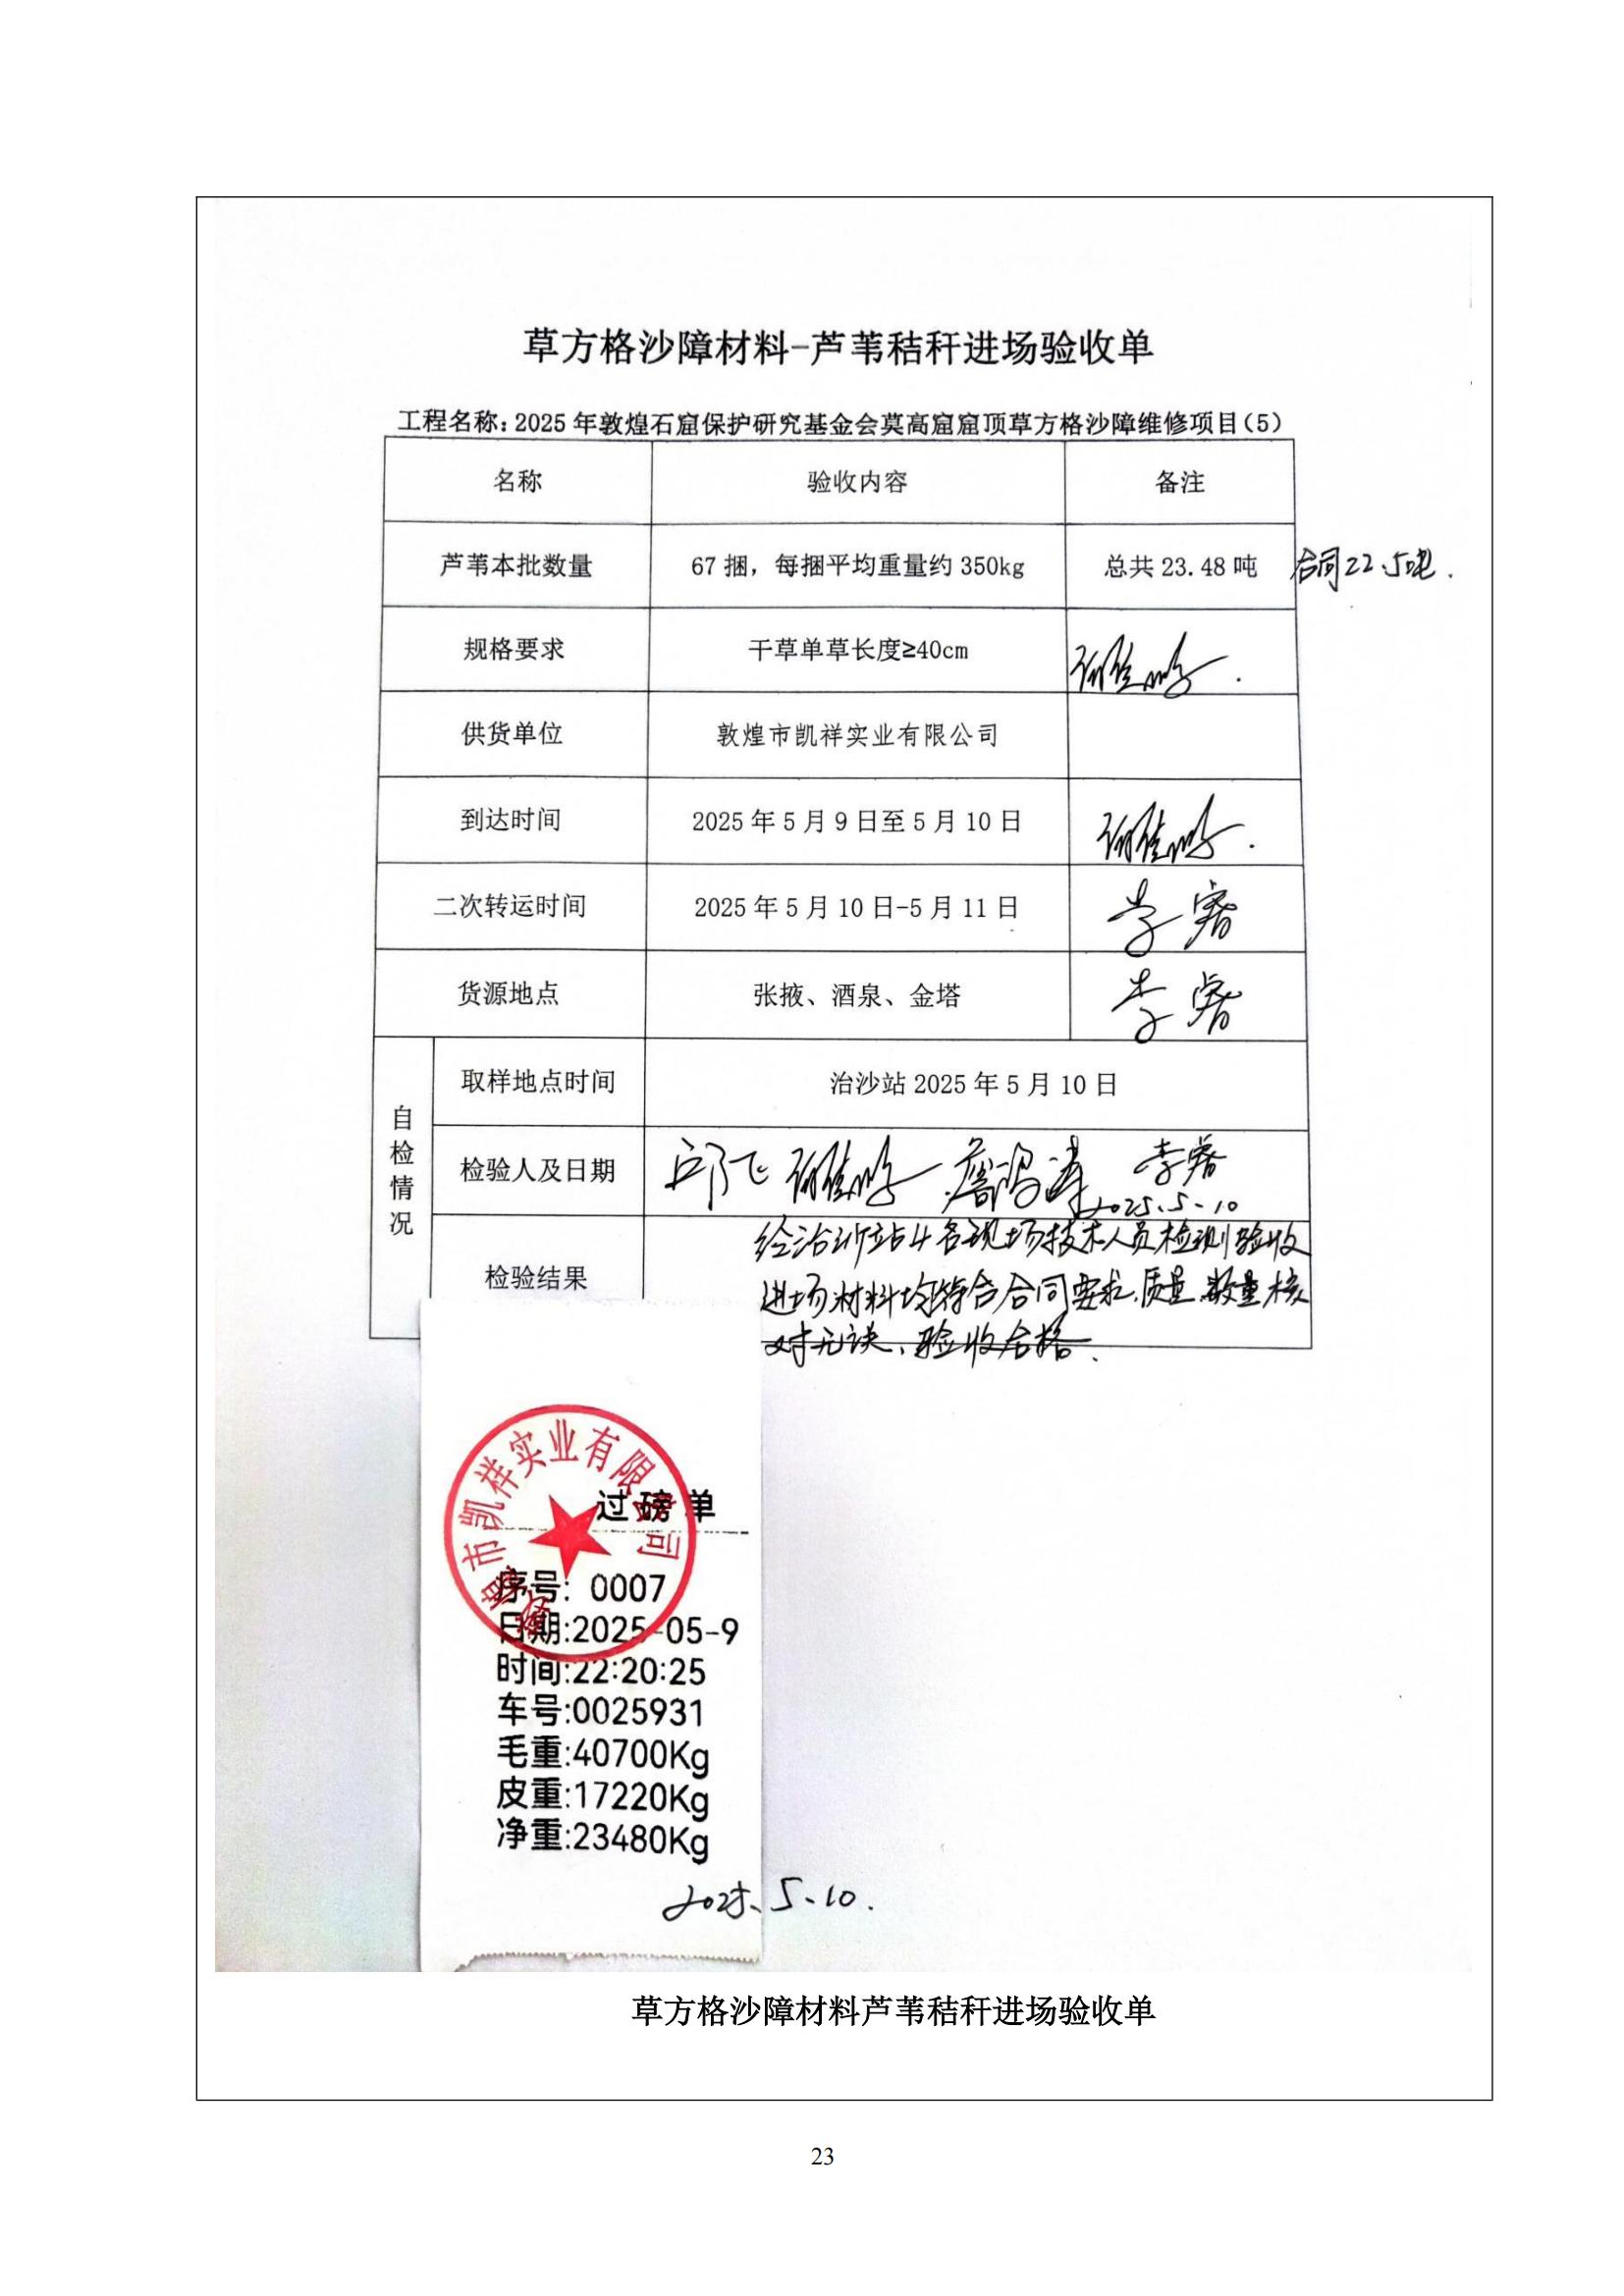 草方格沙障材料-芦苇秸秆进场验收单
工程名称：2025年敦煌石窟保护研究基金会莫高窟窟顶草方格沙障维修项目（5）
名称 验收内容 备注
芦苇本批数量 67捆，每捆平均重量约350kg 总共23.48吨 合同22.5吨.
规格要求 干草单草长度≥40cm
供货单位 敦煌市凯祥实业有限公司
到达时间 2025年5月9日至5月10日
二次转运时间 2025年5月10日-5月11日 李睿
货源地点 张掖、酒泉、金塔 李睿
自检情况
取样地点时间 治沙站2025年5月10日
检验人及日期 邱飞 李睿
2025.5.10
检验结果
经治沙站4名现场技术人员检测验收
进场材料均符合合同要求.质量.数量核
对无误、验收合格.
敦煌市凯祥实业有限公司
过磅单
序号：0007
日期:2025-05-9
时间:22:20:25
车号:0025931
毛重:40700Kg
皮重:17220Kg
净重:23480Kg
2025.5.10.
草方格沙障材料芦苇秸秆进场验收单
23